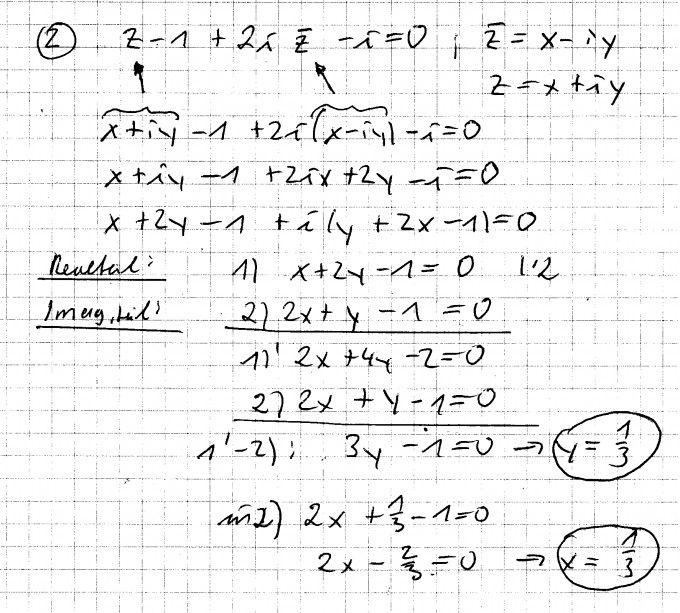 ② z - 1 + 2i z̄ - i = 0 ; z̄ = x - iy
z = x + iy
x + iy - 1 + 2i(x - iy) - i = 0
x + iy - 1 + 2ix + 2y - i = 0
x + 2y - 1 + i(y + 2x - 1) = 0
Realteil: 1) x + 2y - 1 = 0 |·2
Imag.teil: 2) 2x + y - 1 = 0
1)' 2x + 4y - 2 = 0
2) 2x + y - 1 = 0
1'-2): 3y - 1 = 0 → y = 1/3
in 2) 2x + 1/3 - 1 = 0
2x - 2/3 = 0 → x = 1/3